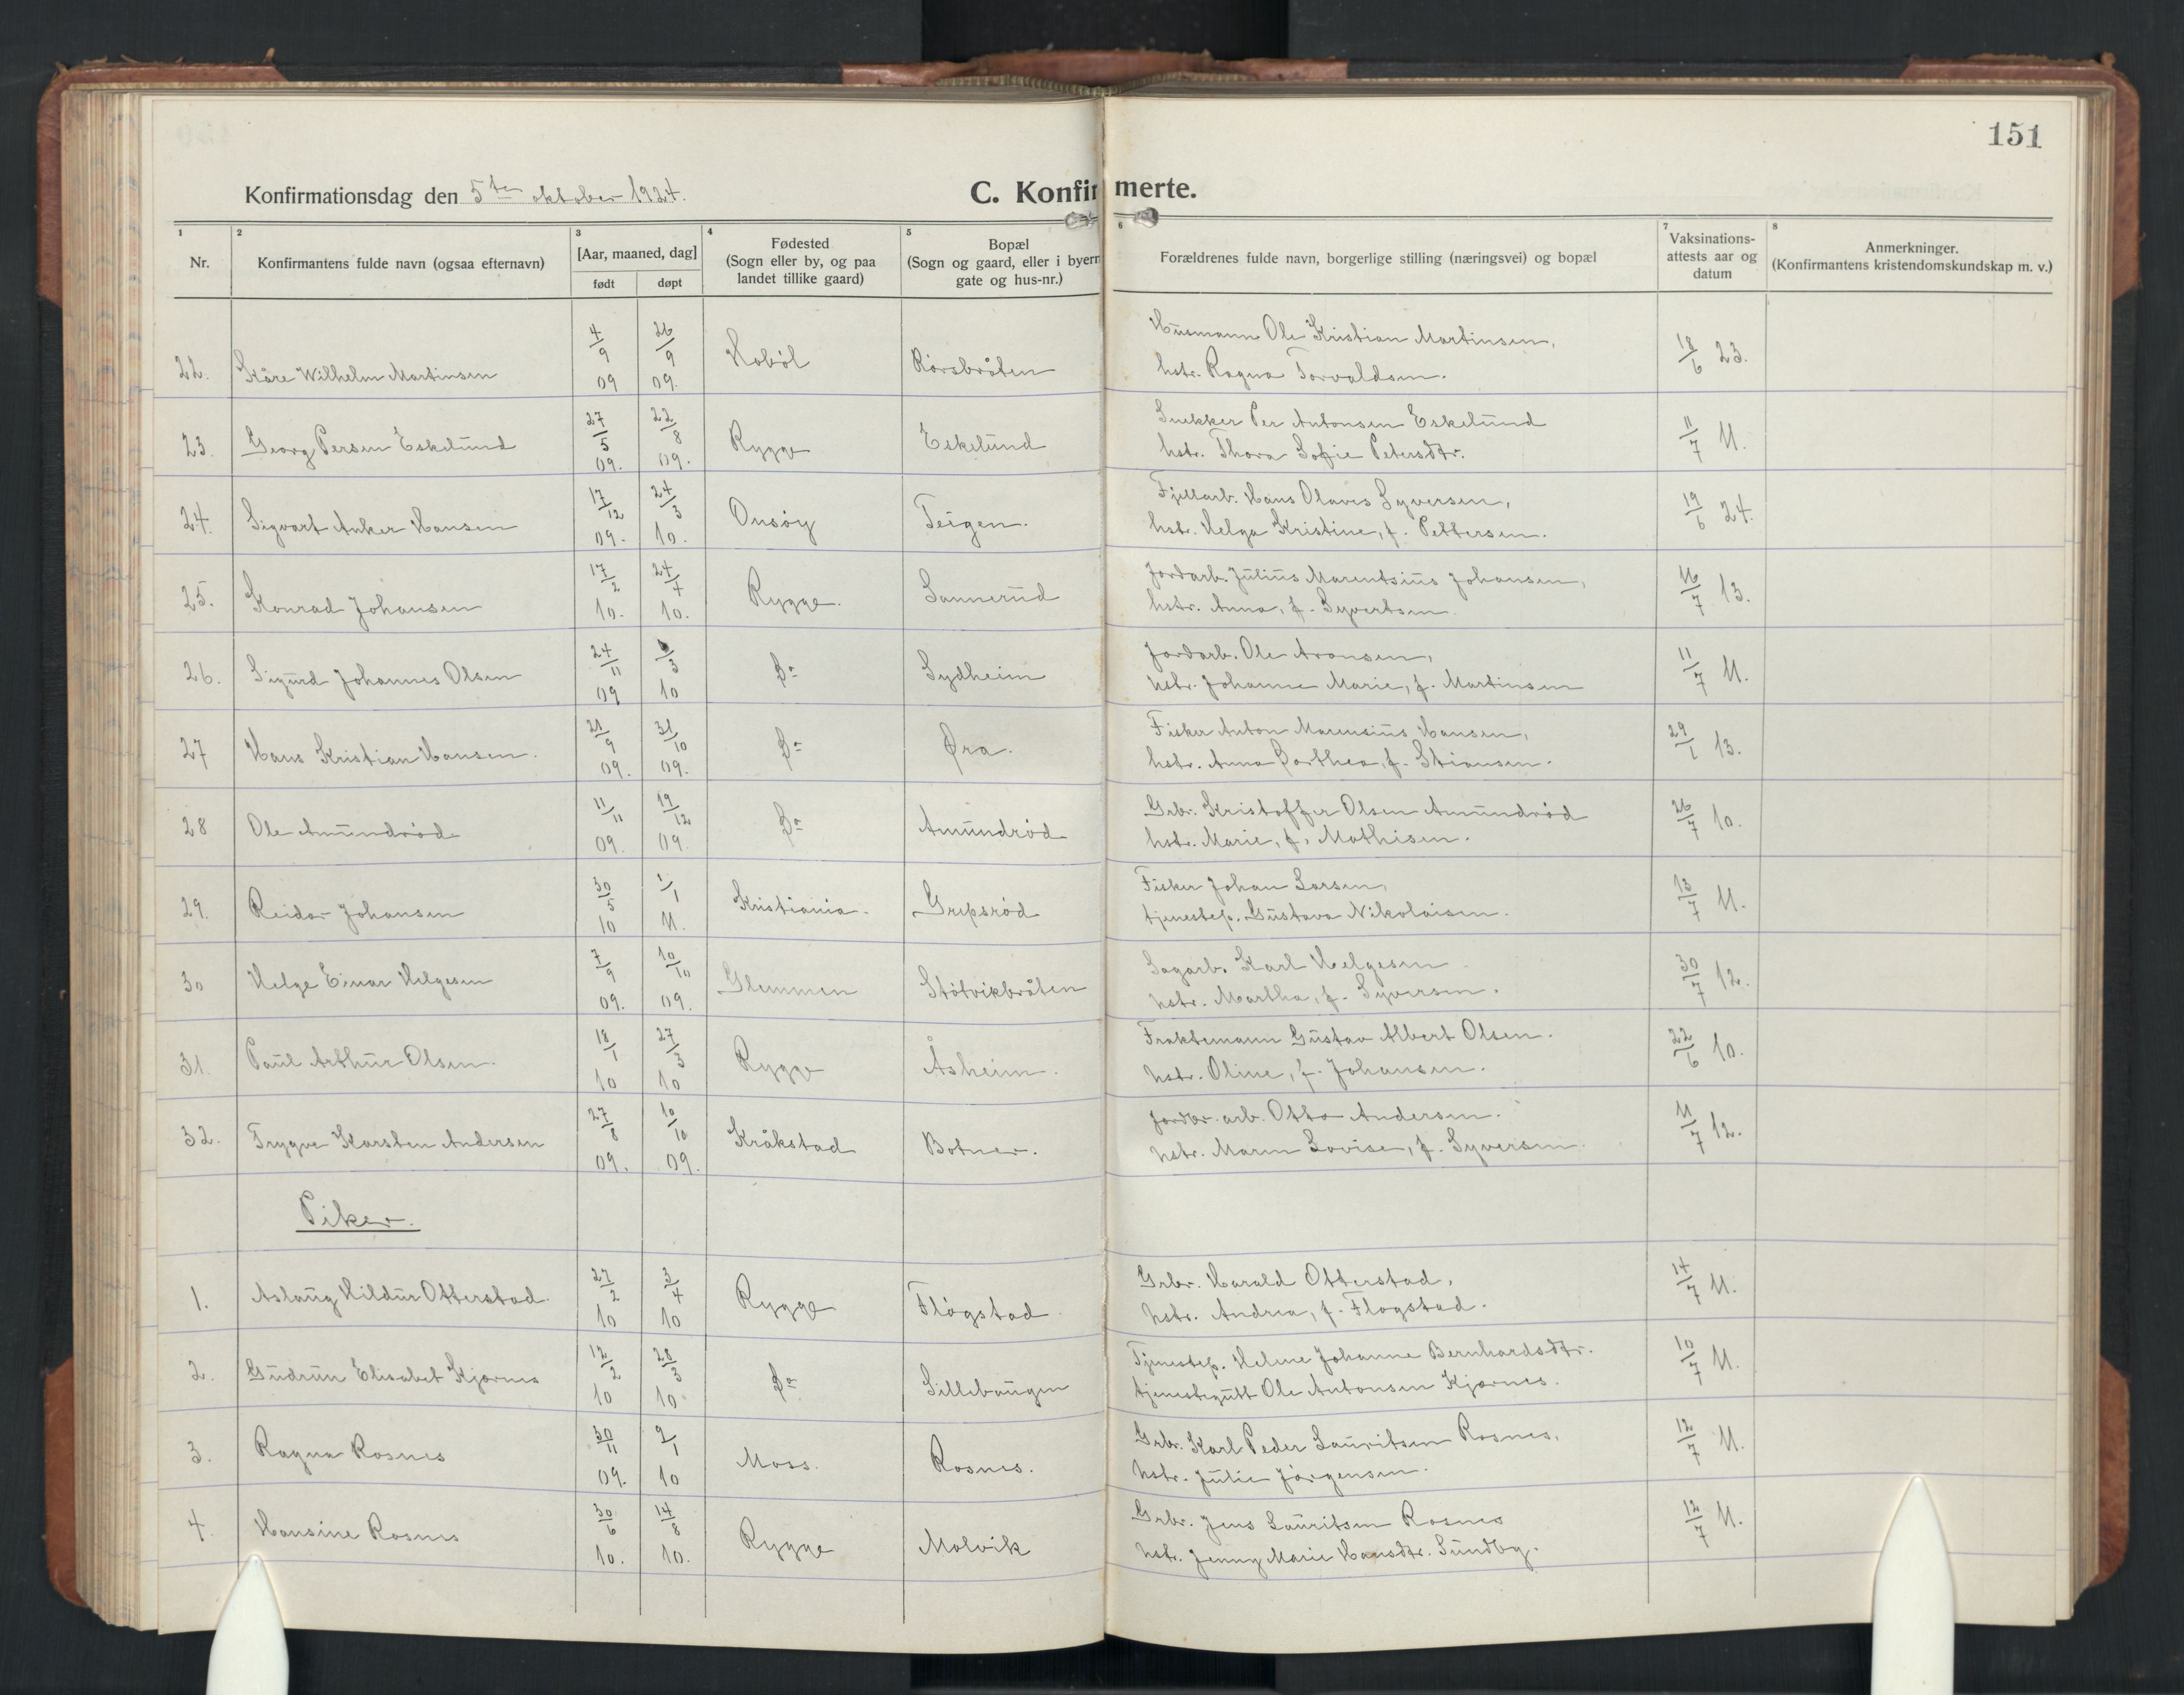 151
Konfirmationsdag den 5te oktober 1924.
C. Konfirmerte.
1 2 3 4 5 6 7 8
Nr.
Konfirmantens fulde navn (ogsaa efternavn)
[Aar, maaned, dag]
født døpt
Fødested
(Sogn eller by, og paa
landet tillike gaard)
Bopæl
(Sogn og gaard, eller i byern
gate og hus-nr.)
Forældrenes fulde navn, borgerlige stilling (næringsvei) og bopæl
Vaksinations-
attests aar og
datum
Anmerkninger.
(Konfirmantens kristendomskundskap m. v.)
22. Kåre Wilhelm Martinsen 4/9 09 26/9 09. Hobøl Rørsbråten Husmann Ole Kristian Martinsen, 18/6 23.
hstr. Ragna Torvaldsen.
23. Georg Persen Eskelund 27/5 09. 22/8 09. Rygge Eskelund Snekker Per Antonsen Eskelund 11/7 11.
hstr. Thora Sofie Petersdtr.
24. Sigvart Anker Hansen 17/12 09. 24/3 10. Onsøy Teigen. Fjellarb. Hans Olaves Syversen, 19/6 24.
hstr. Helga Kristine, f. Pettersen.
25. Konrad Johansen 17/2 10. 24/4 10. Rygge. Sannerud Jordarb. Julius Marentsius Johansen, 16/7 13.
hstr. Anna, f. Syvertsen.
26. Sigurd Johannes Olsen 24/11 09 /3 10 Do Sydheim Jordarb. Ole Aronsen, 11/7 11.
hstr. Johanne Marie, f. Martinsen
27 Hans Kristian Hansen. 21/9 09. 31/10 09. Do Øra. Fisker Anton Marensius Hansen, 29/1 13.
hstr. Anna Dorthea, f. Stiansen.
28 Ole Amundrød 11/11 09. 19/12 09. Do Amundrød Grbr. Kristoffer Olsen Amundrød 26/7 10.
hstr. Marie, f. Mathisen.
29. Reidar Johansen 30/5 10 1/1 11. Kristiania. Gripsrød Fisker Johan Larsen, 13/7 11.
tjenestep. Gustava Nikolaisen.
30 Helge Einar Helgesen 7/9 09. 10/10 09. Glemmen Støtvikbråten Sagarb. Karl Helgesen 30/7 12.
hstr. Martha, f. Syversen.
31. Paul Arthur Olsen. 18/1 10 27/3 10 Rygge Åsheim. Fraktemann Gustav Albert Olsen. 22/6 10.
hstr. Oline, f. Johansen.
32. Trygve Karsten Andersen 27/8 09. 10/10 09. Kråkstad Botner. Jordbr. arb. Otto Andersen. 11/7 12.
hstr. Maren Lovise, f. Syversen.
Piker.
1. Aslaug Hildur Otterstad. 27/2 10 3/4 10 Rygge Fløgstad Grbr. Harald Otterstad, 14/7 11.
hstr. Andrea, f. Flogstad.
2. Gudrun Elisabet Kjærnes 12/2 10 28/3 10. Do Sillebaugen Tjenestep. Helene Johanne Bernhardsdtr. 10/7 11.
tjenestegutt Ole Antonsen Kjærnes.
3. Ragna Rosnes 30/11 09. 9/1 10 Moss. Rosnes. Grbr. Karl Peder Lauritsen Rosnes, 12/7 11.
hstr. Julie Jørgensen.
4. Hansine Rosnes 30/6 10. 14/8 10. Rygge Molvik Grbr. Jens Lauritsen Rosnes 12/7 11.
hstr. Jenny Marie Hansdtr. Sundby.